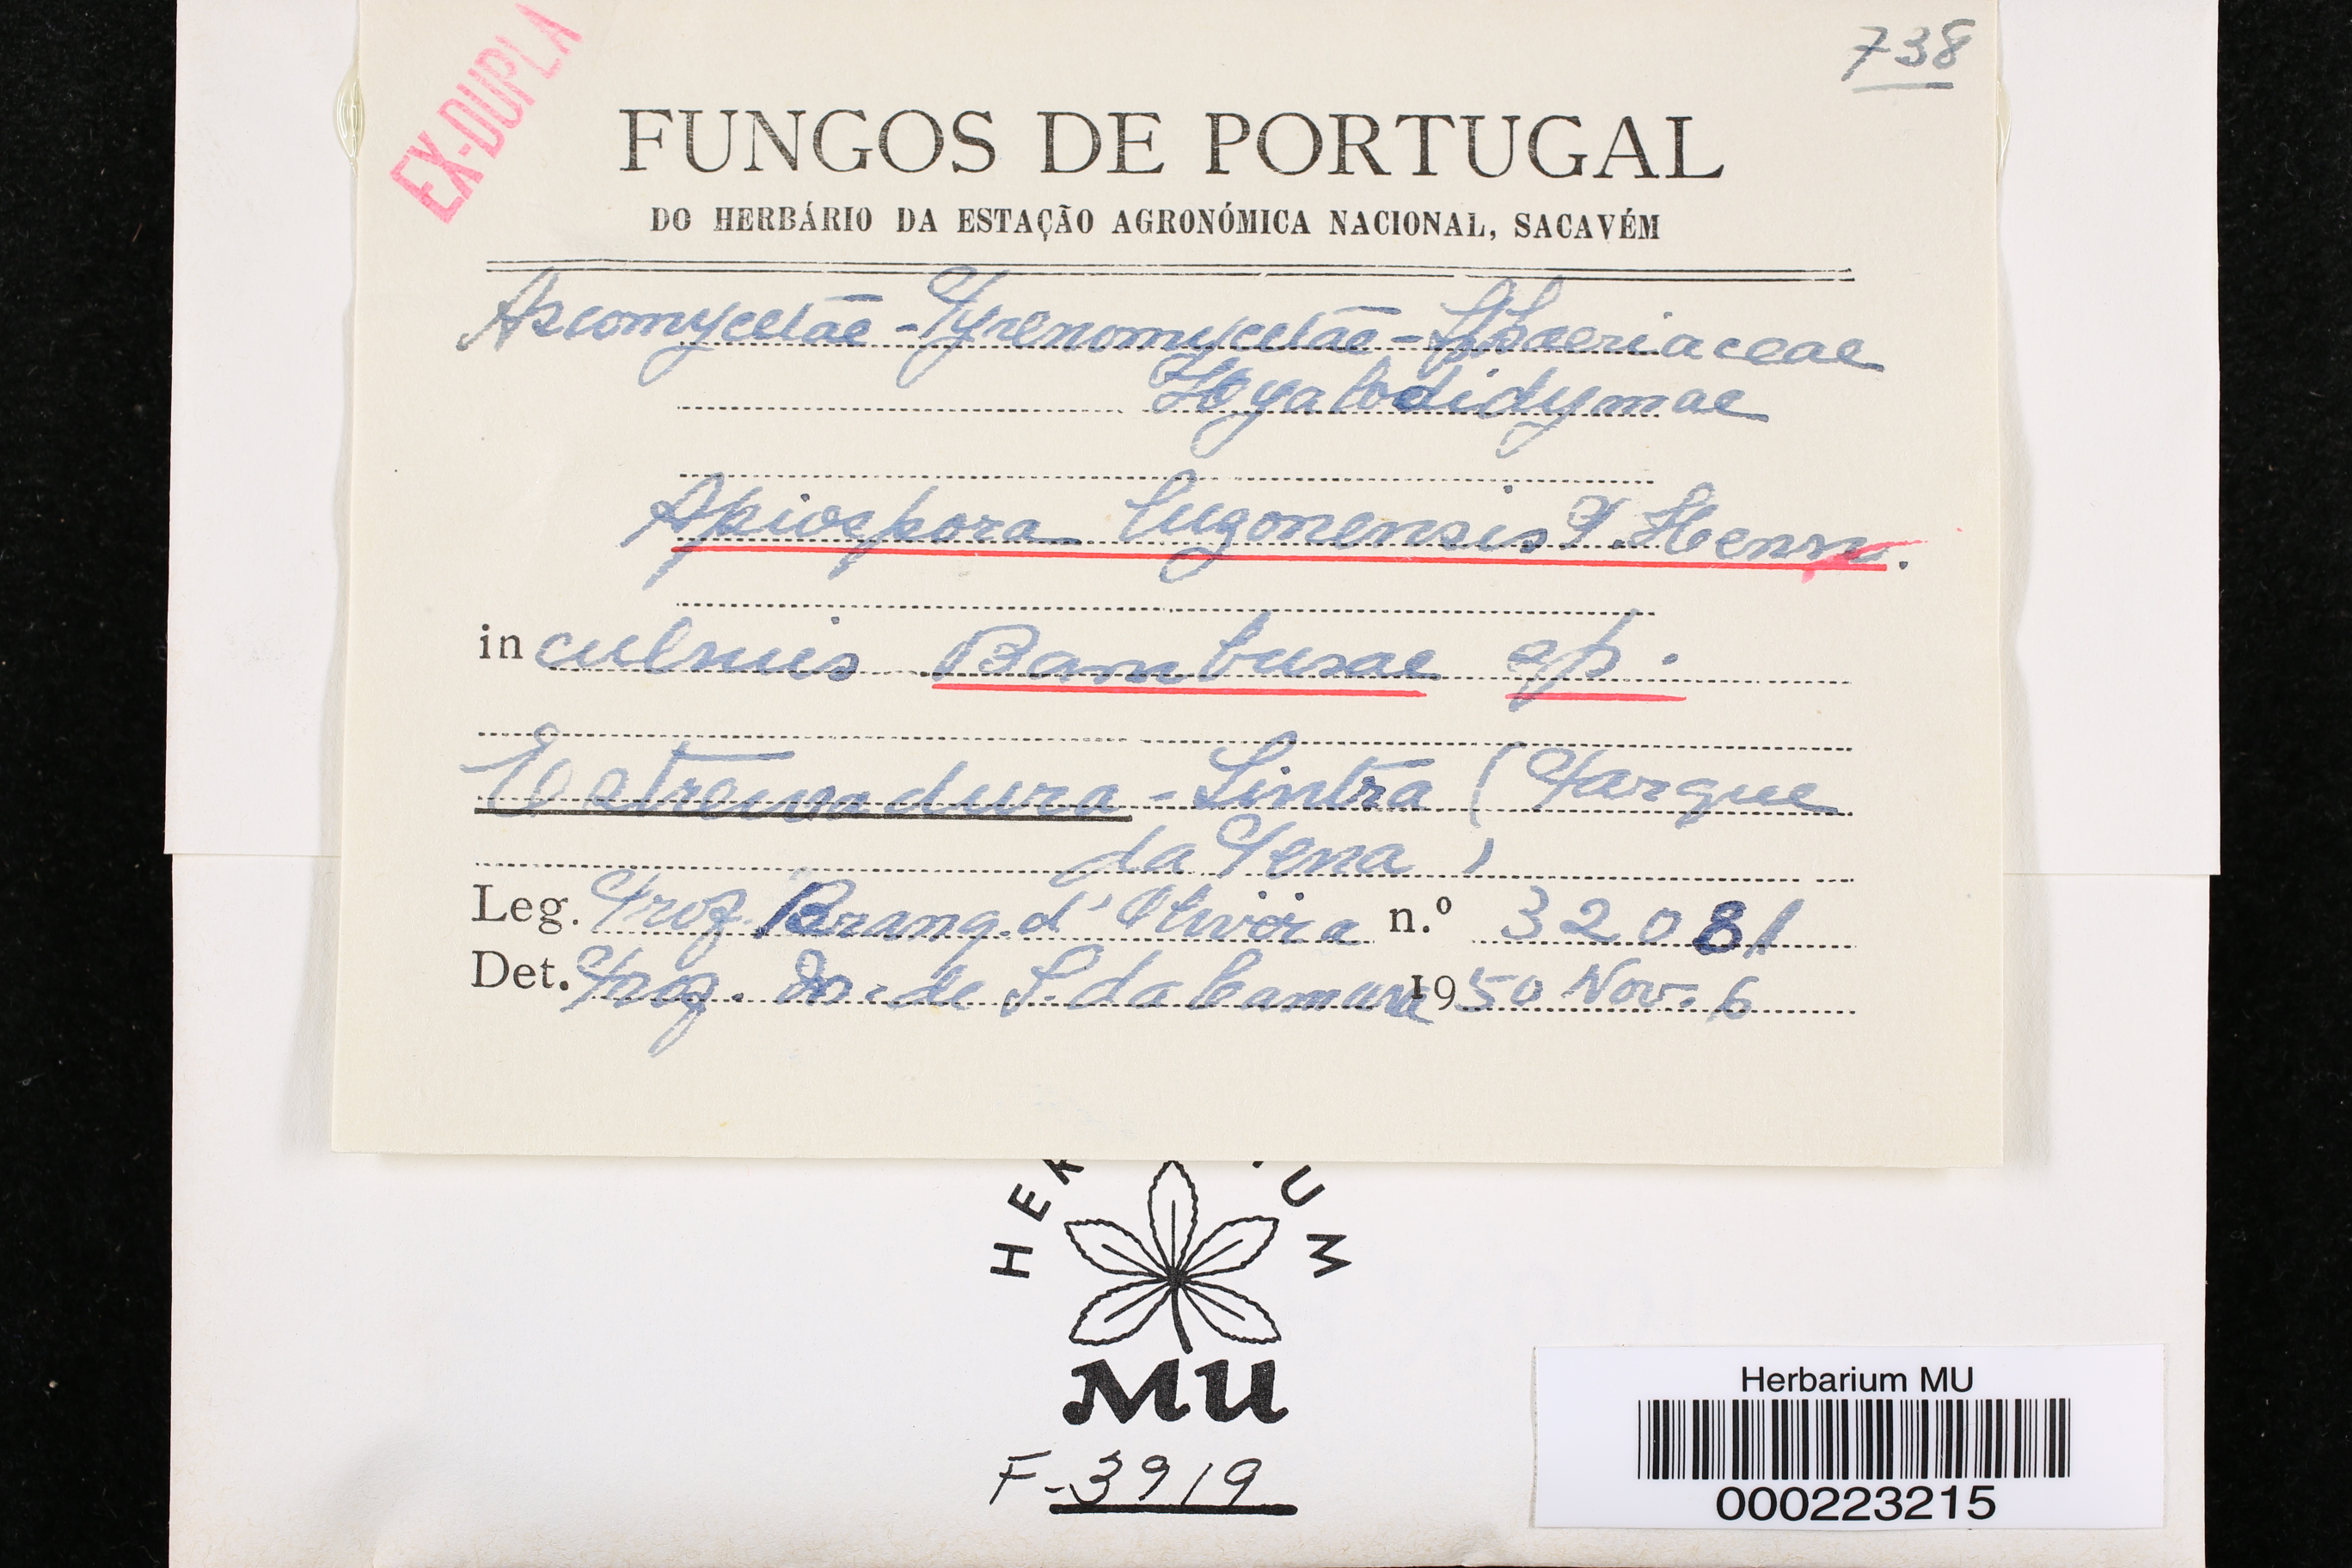 738
EX-DUPLA
FUNGOS DE PORTUGAL
DO HERBÁRIO DA ESTAÇÃO AGRONÓMICA NACIONAL, SACAVÉM
Ascomycetae - Pyrenomycetae - Sphaeriaceae
Hyalodidymae
Apiospora luzonensis P. Henn.
in culmis Bambusae sp.
Estremadura - Sintra (Parque
da Pena)
Leg. Prof. Branq. d'Oliveira n.º 32081
Det. Prof. Dr. de S. da Camara 1950 Nov. 6
HER UM
MU
F-3919
Herbarium MU
000223215